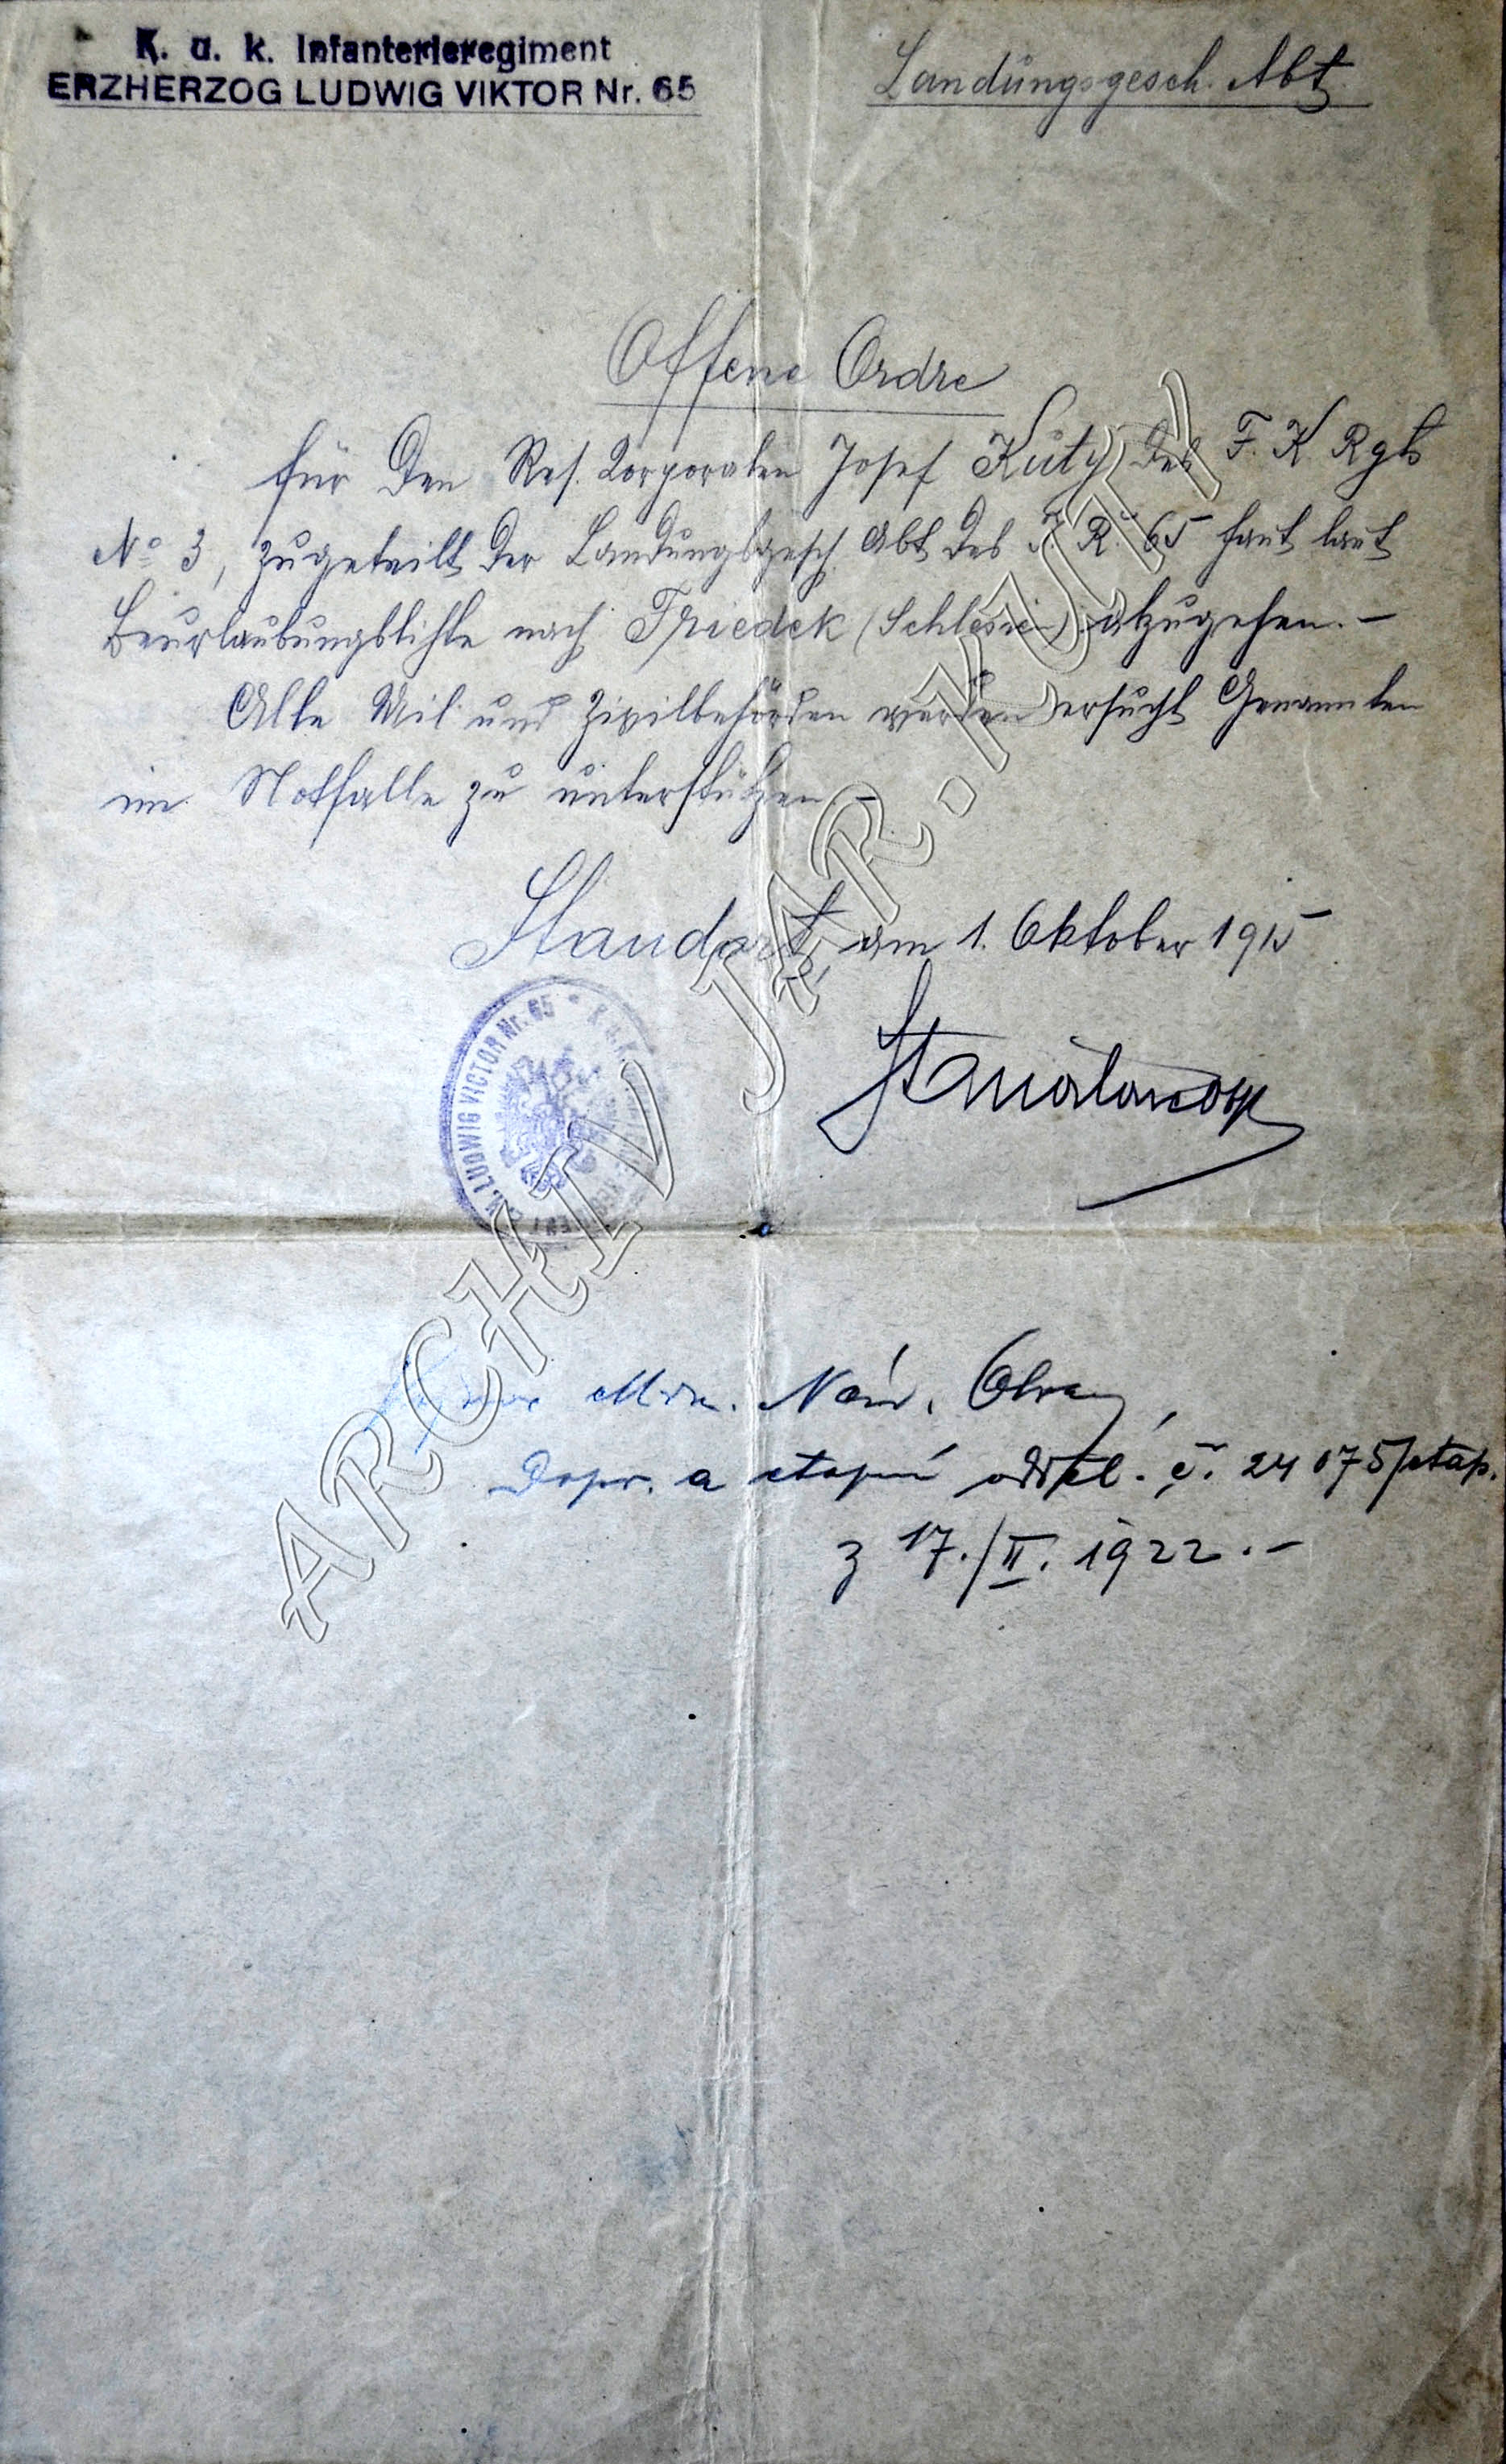 K. u. k. Infanterieregiment
ERZHERZOG LUDWIG VIKTOR Nr. 65
Landungsgesch. Abt.
Offene Ordre
für den Res. Korporalen Josef Kuty des F. K Rgts
No 3, zugeteilt der Landungsgesch. Abt des J. R. 65 hat laut
Beurlaubungsliste nach Friedek (Schlesien) abzugehen. –
Alle Mil. und Zivilbehörden werden ersucht Genannten
im Notfalle zu unterstützen –
Standort, am 1. Oktober 1915
LUDWIG VICTOR Nr. 65
Min. Nár. Obrany,
Dopr. a etapní odděl. č. 24075/etap.
z 17./II. 1922. –
ARCHIV JAR. KUTY